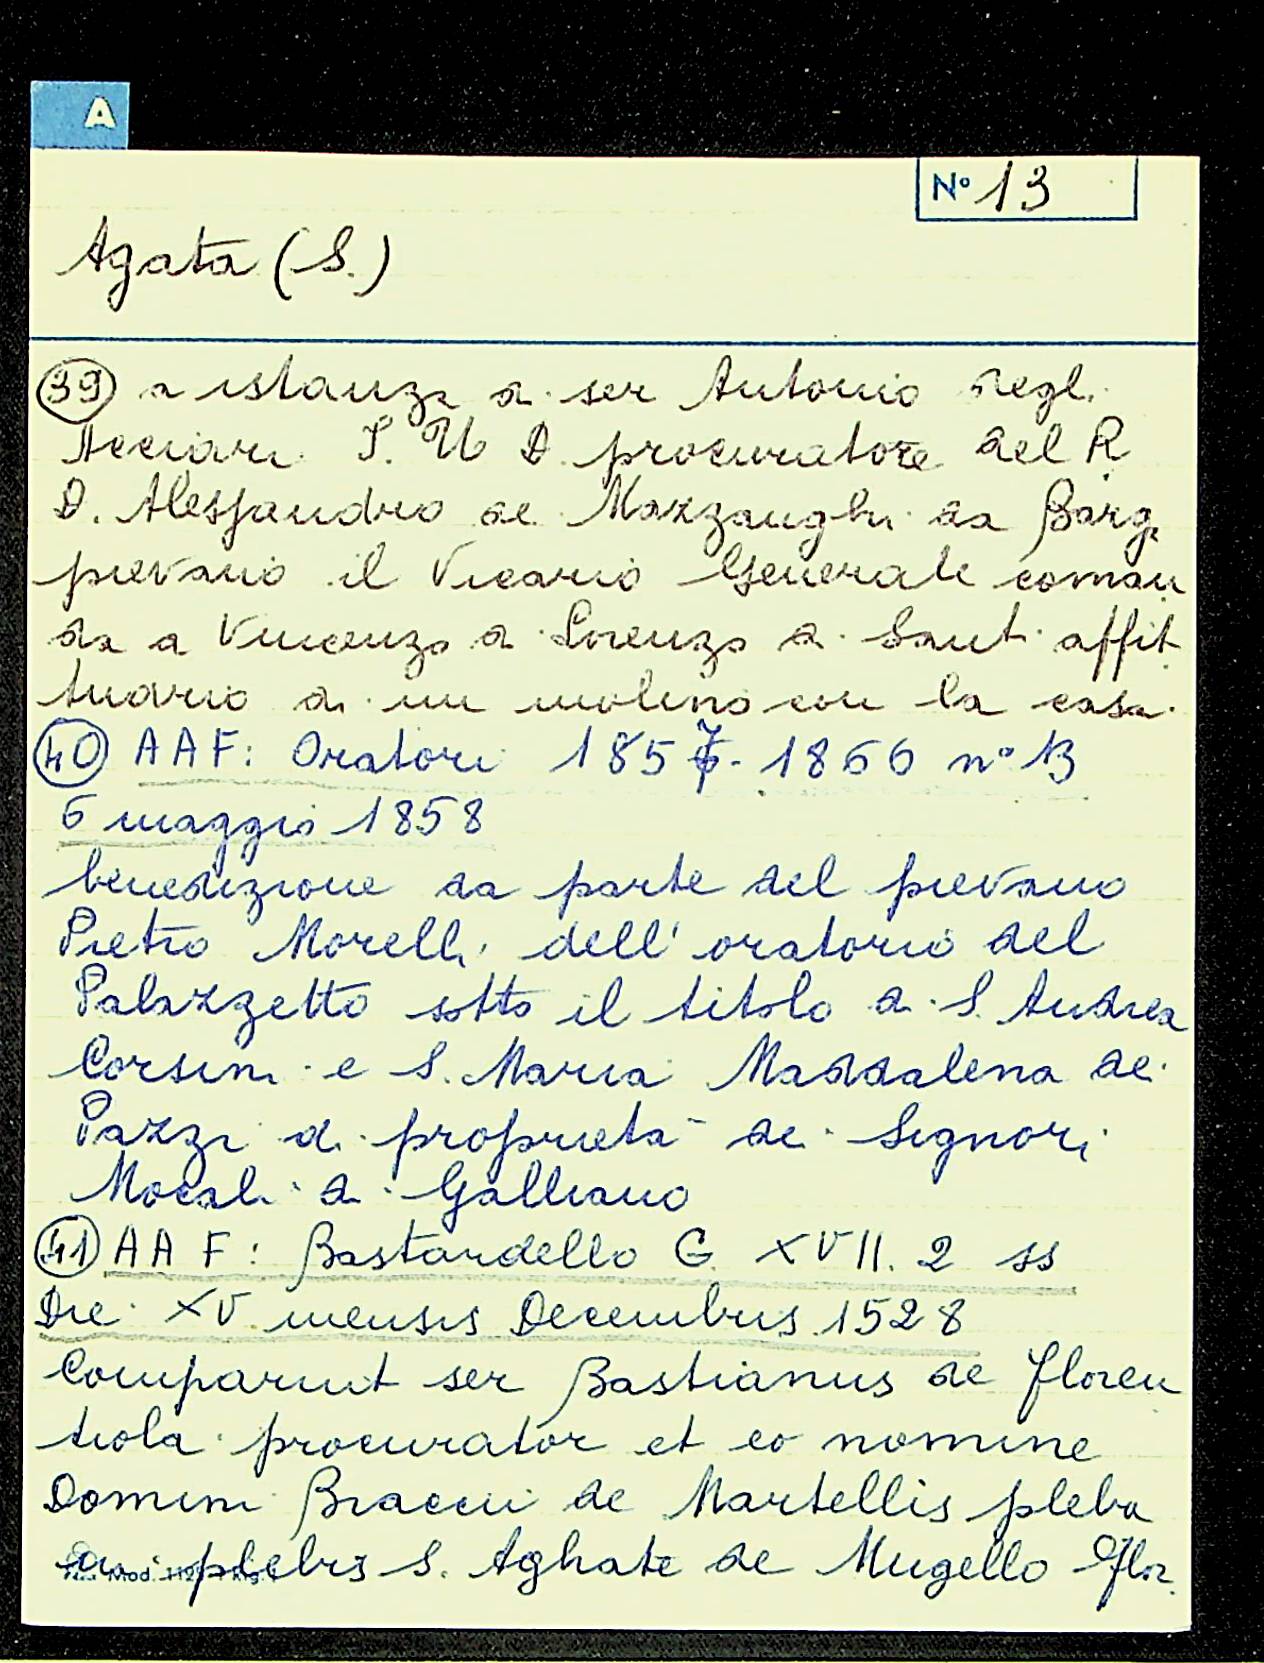 A
N° 13
Agata (S.)
39 a istanza di ser Antonio degli
Acciari J. U D. procuratore del R
D. Alessandro de Mazzanghi da Barga
pievano il Vicario Generale coman
da a Vincenzo di Lorenzo di Santi affit
tuario di un molino con la casa.
40 AAF: Oratori 1857-1866 n° 13
6 maggio 1858
benedizione da parte del pievano
Pietro Morelli dell'oratorio del
Palazzetto sotto il titolo di S. Andrea
Corsini e S. Maria Maddalena de'
Pazzi di proprietà dei Signori
Mocali di Galliano
41 AAF: Bastardello G XVII. 2 ss
Die XV mensis Decembris 1528
Comparuit ser Bastianus de Floren
tiola procurator et eo nomine
Domini Braccii de Martellis pleba
ni plebis S. Aghate de Mugello Flor.
Mod.